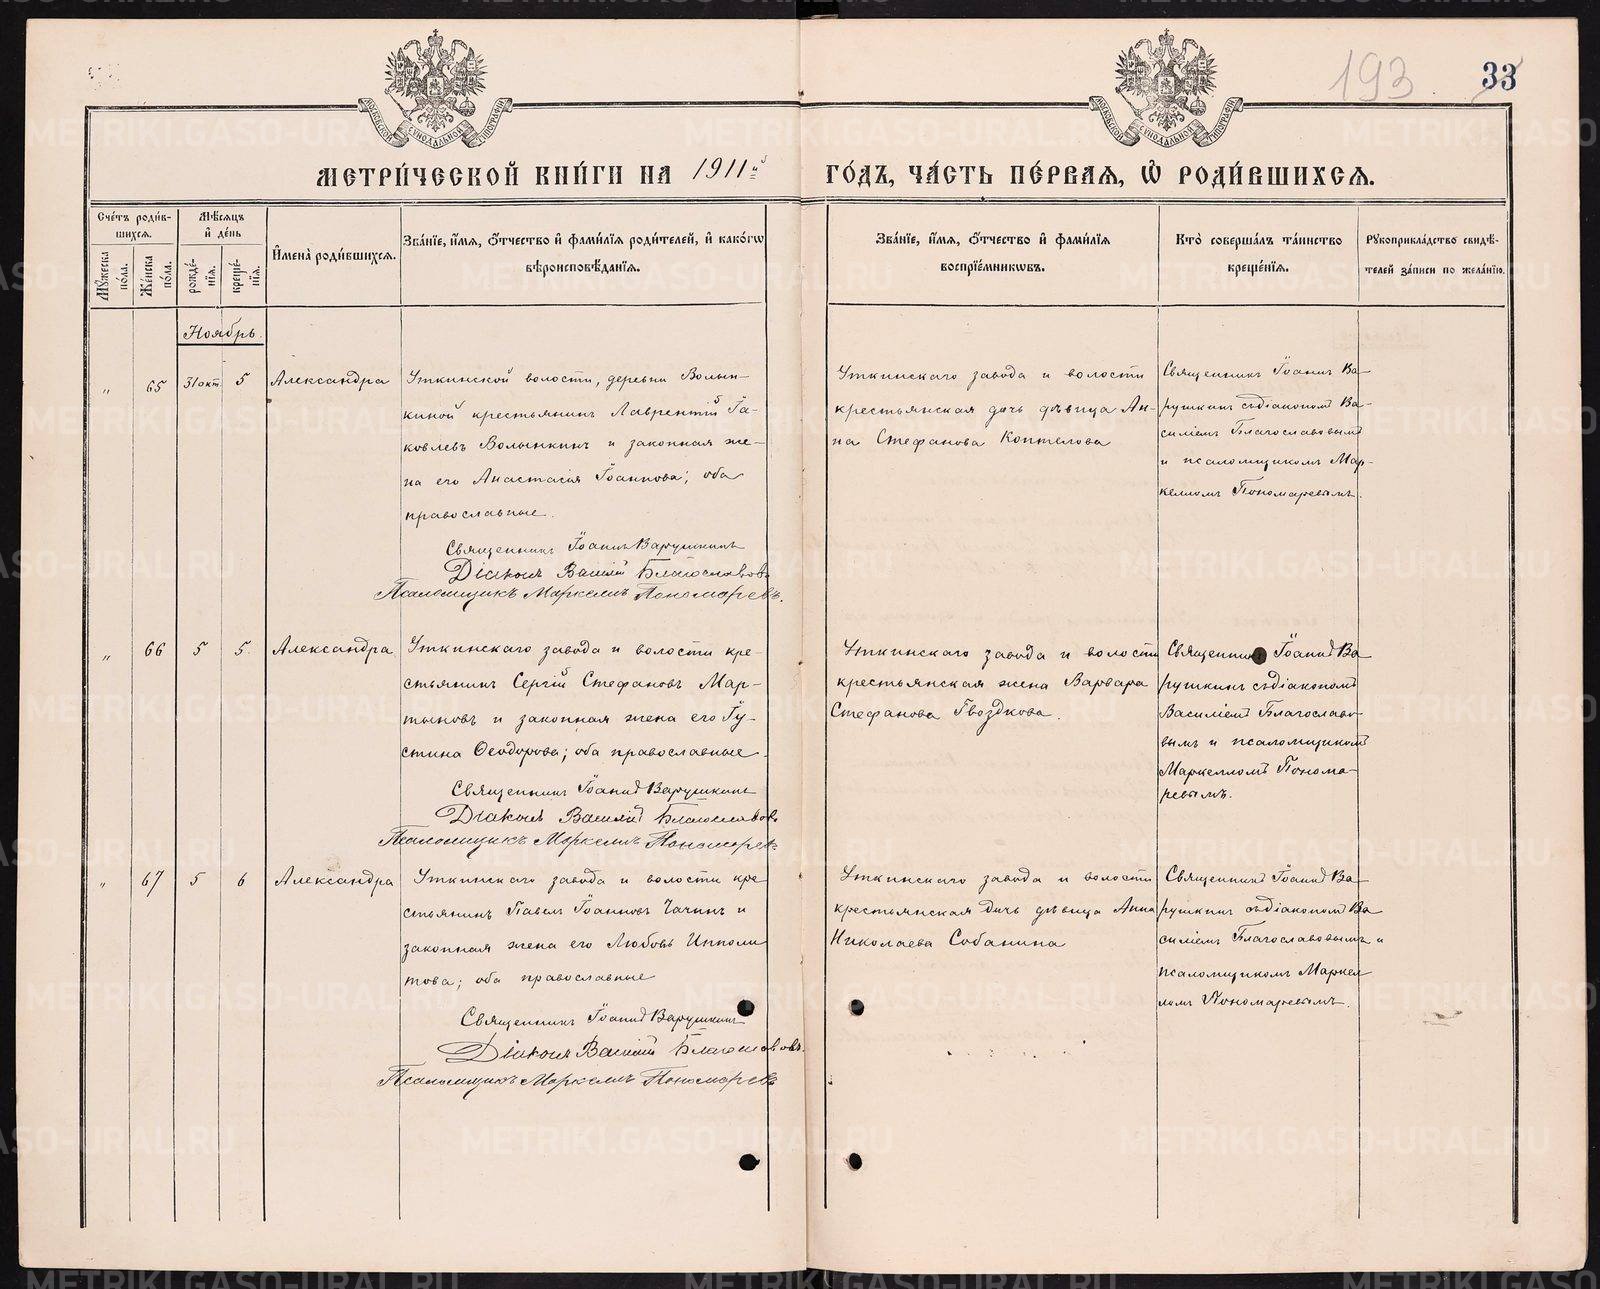 193
33
МОСКОВСКОЙ СѴНОДАЛЬНОЙ ТИПОГРАФІИ
МОСКОВСКОЙ СѴНОДАЛЬНОЙ ТИПОГРАФІИ
МЕТРИ́ЧЕСКОЙ КНИ́ГИ НА 1911й ГО́ДЪ, ЧА́СТЬ ПЕ́РВАѦ, Ѽ РОДИ́ВШИХСѦ.
Сче́тъ роди́в-
шихсѧ.
Мꙋ́жеска по́ла.
Же́нска по́ла.
Мѣ́сѧцъ
и҆ де́нь
рожде́-
нїѧ.
креще́-
нїѧ.
И҆мена̀ роди́вшихсѧ.
Зва́нїе, и҆́мѧ, ѻ҆́тчество и҆ фами́лїѧ роди́телей, и҆ како́гѡ
вѣроисповѣ́данїѧ.
Зва́нїе, и҆́мѧ, ѻ҆́тчество и҆ фами́лїѧ
воспрїе́мникѡвъ.
Кто̀ соверша́лъ та́инство
креще́нїѧ.
Рꙋкоприкла́дство свидѣ́-
телей за́писи по жела́нїю.
Ноябрь.
" 65 31 окт. 5 Александра
Уткинской волости, деревни Волын-
киной крестьянинъ Лаврентій Іа-
ковлевъ Волынкинъ и законная же-
на его Анастасія Іоаннова; оба
православные.
Священникъ Іоаннъ Варушкинъ
Діаконъ Василій Благославовъ
Псаломщикъ Маркеллъ Пономаревъ.
Уткинскаго завода и волости
крестьянская дочь дѣвица Ан-
на Стефанова Коптелова
Священникъ Іоаннъ Ва-
рушкинъ съ діакономъ Ва-
силіемъ Благославовымъ
и псаломщикомъ Мар-
келломъ Пономаревымъ.
" 66 5 5. Александра
Уткинскаго завода и волости кре-
стьянинъ Сергій Стефановъ Мар-
тыновъ и законная жена его Іу-
стина Ѳеодорова; оба православные
Священникъ Іоаннъ Варушкинъ
Діаконъ Василій Благославовъ
Псаломщикъ Маркеллъ Пономаревъ
Уткинскаго завода и волости
крестьянская жена Варвара
Стефанова Гвоздкова.
Священникъ Іоаннъ Ва
рушкинъ съ діакономъ
Василіемъ Благославо-
вымъ и псаломщикомъ
Маркелломъ Понома-
ревымъ.
" 67 5 6 Александра
Уткинскаго завода и волости кре
стьянинъ Павелъ Іоанновъ Чачинъ и
законная жена его Любовь Ипполи
това; оба православные
Священникъ Іоаннъ Варушкинъ
Діаконъ Василій Благославовъ.
Псаломщикъ Маркеллъ Пономаревъ
Уткинскаго завода и волости
крестьянская дочь дѣвица Анна
Николаева Собанина
Священникъ Іоаннъ Ва
рушкинъ съ діакономъ Ва
силіемъ Благославовымъ и
псаломщикомъ Маркел
ломъ Пономаревымъ.
METRIKI.GASO-URAL.RU